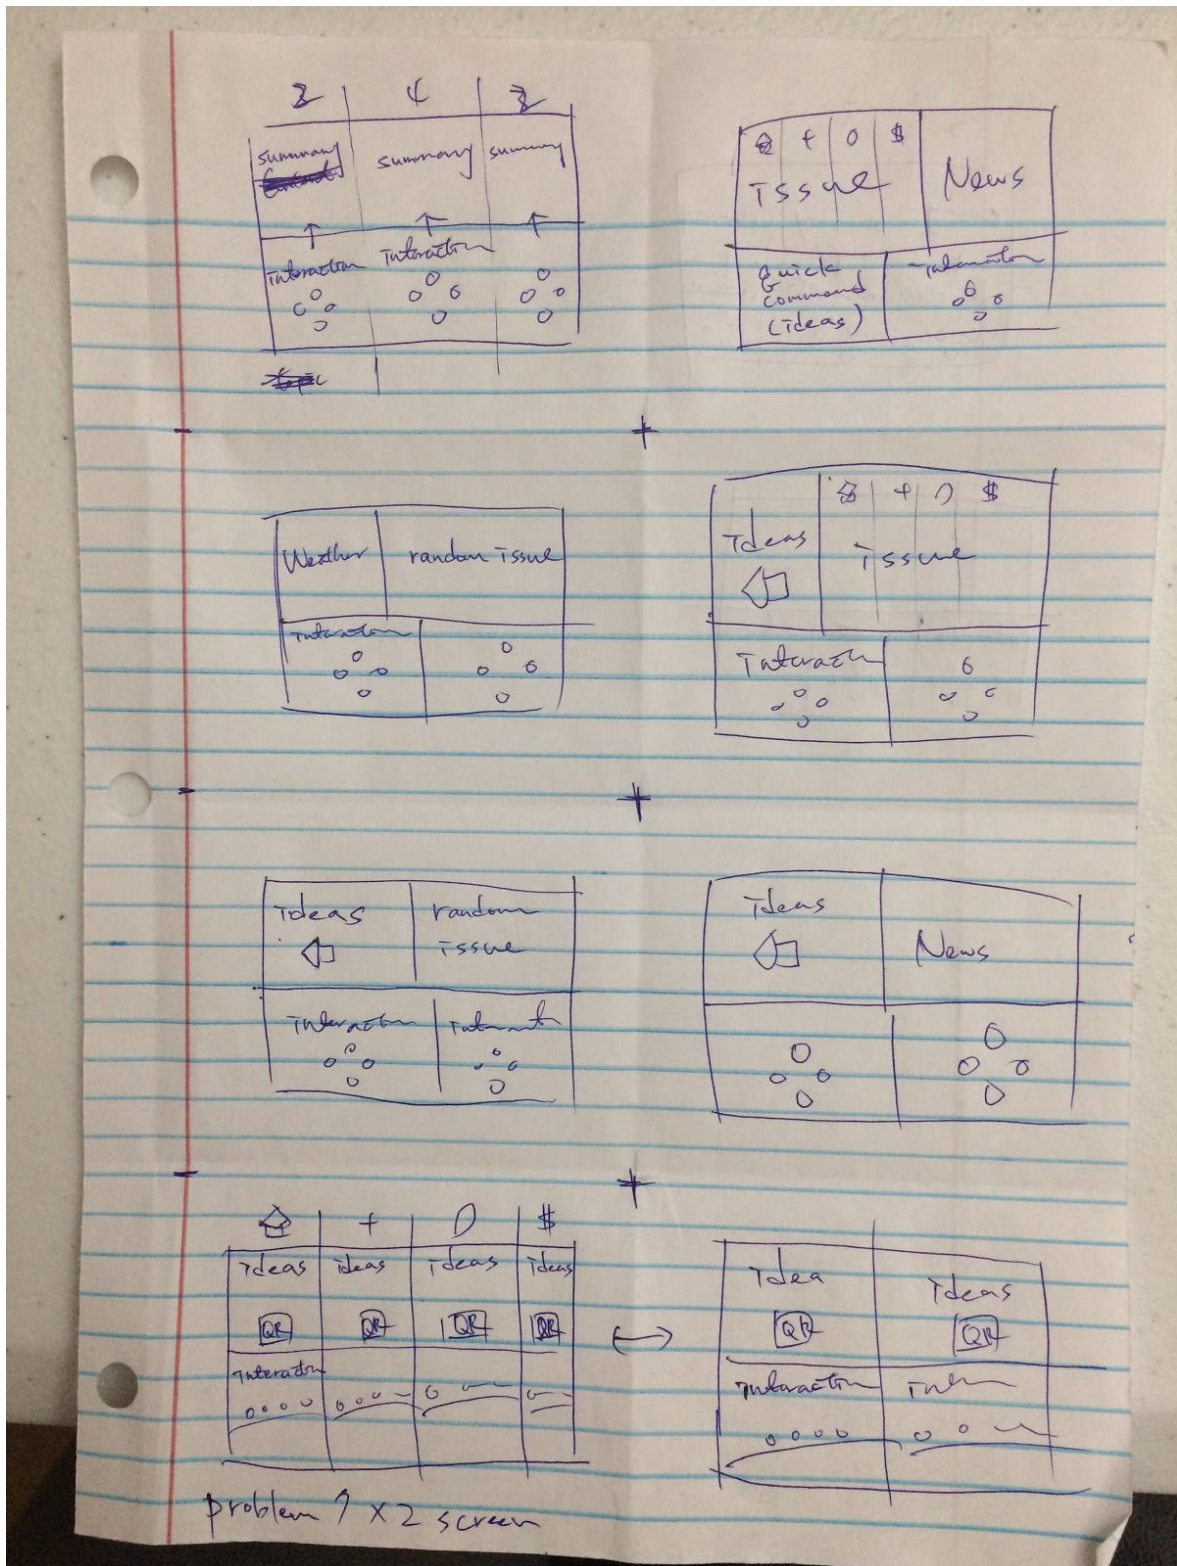 summary summary summary
Interaction Interaction
$
Issue News
Quick
Command
(ideas)
Interaction
Weather random Issue
Interaction
$
Ideas Issue
Interaction
Ideas random
Issue
Interaction
Ideas
News
+ $
Ideas ideas ideas Ideas
QR QR QR QR
Interaction
Idea Ideas
QR QR
Interaction
problem ? x 2 screen